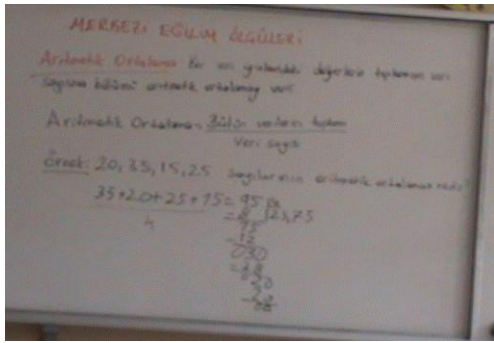 MERKEZİ EĞİLİM ÖLÇÜLERİ
Aritmetik Ortalama: Bir veri grubundaki değerlerin toplamının veri
sayısına bölümü aritmetik ortalamayı verir.
Aritmetik Ortalama = Bütün verilerin toplamı
Veri sayısı
Örnek: 20, 35, 15, 25 sayılarının aritmetik ortalaması nedir?
35+20+25+15 = 95
4
23,75
15
12
030
28
20